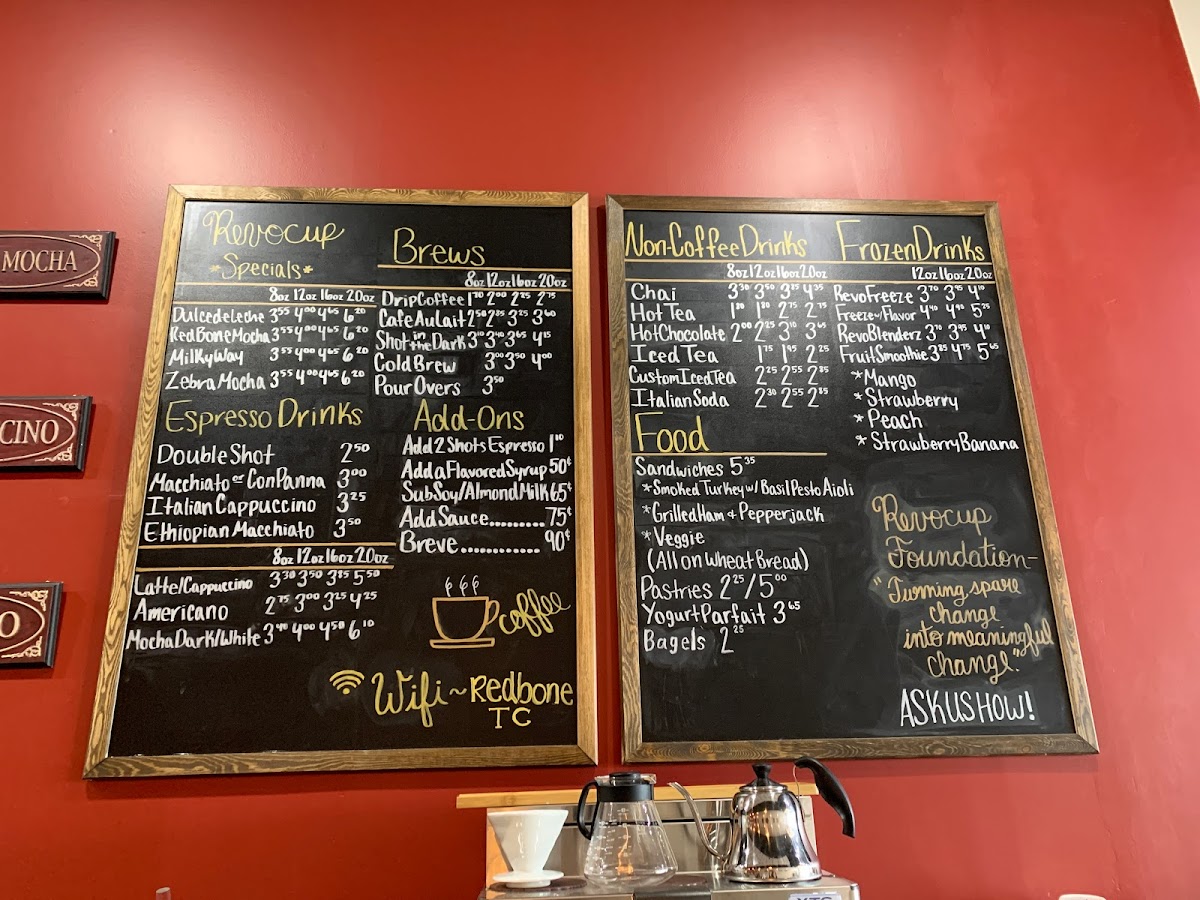 MOCHA
CINO
O
Revocup
*Specials*
8oz 12oz 16oz 20oz
Dulce de Leche 3.55 4.00 4.65 6.20
Red Bone Mocha 3.55 4.00 4.65 6.20
Milky Way 3.55 4.00 4.65 6.20
Zebra Mocha 3.55 4.00 4.65 6.20
Espresso Drinks
Double Shot 2.50
Macchiato or Con Panna 3.00
Italian Cappuccino 3.25
Ethiopian Macchiato 3.50
8oz 12oz 16oz 20oz
Latte/Cappuccino 3.30 3.50 3.85 5.50
Americano 2.75 3.00 3.25 4.25
Mocha Dark/White 3.40 4.00 4.50 6.10
Brews
8oz 12oz 16oz 20oz
Drip Coffee 1.70 2.00 2.25 2.75
Cafe Au Lait 2.50 2.85 3.25 3.60
Shot in the Dark 3.10 3.40 3.65 4.15
Cold Brew 3.00 3.50 4.00
Pour Overs 3.50
Add-Ons
Add 2 Shots Espresso 1.10
Add a Flavored Syrup 50¢
Sub Soy/Almond Milk 65¢
Add Sauce.......... 75¢
Breve............. 90¢
coffee
Wifi ~ Redbone
TC
Non-Coffee Drinks
8oz 12oz 16oz 20oz
Chai 3.30 3.50 3.85 4.35
Hot Tea 1.80 1.80 2.75 2.75
Hot Chocolate 2.00 2.25 3.10 3.65
Iced Tea 1.75 1.95 2.25
Custom Iced Tea 2.25 2.55 2.85
Italian Soda 2.30 2.55 2.85
Food
Sandwiches 5.35
*Smoked Turkey w/ Basil Pesto Aioli
*Grilled Ham & Pepperjack
*Veggie
(All on Wheat Bread)
Pastries 2.25/5.00
Yogurt Parfait 3.65
Bagels 2.25
Frozen Drinks
12oz 16oz 20oz
Revo Freeze 3.70 3.95 4.10
Freeze w/Flavor 4.40 4.90 5.25
Revo Blenderz 3.70 3.95 4.10
Fruit Smoothie 3.85 4.75 5.65
*Mango
*Strawberry
*Peach
*Strawberry Banana
Revocup
Foundation-
"Turning spare
change
into meaningful
change."
ASK US HOW!